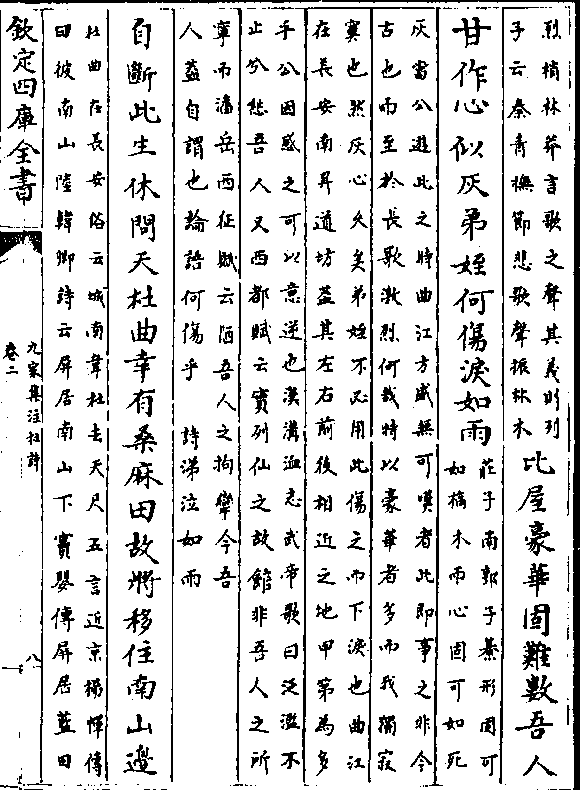 烈梢林莽言歌之聲其義則列
子云秦青撫節悲歌聲振林木
比屋豪華固難數吾人
甘作心似灰弟姪何傷淚如雨
莊子南郭子綦形固可
如槁木而心固可如死
灰當公遊此之時曲江方盛無可嘆者此即事之非今
古也而至於長歌激烈何哉特以豪華者多而我獨寂
寞也然灰心久矣弟姪不必用此傷之而下淚也曲江
在長安南昇道坊蓋其左右前後相近之地甲第為多
乎公因感之可以意逆也漢溝洫志武帝歌曰泛濫不
止兮愁吾人又西都賦云實列仙之故館非吾人之所
寧而潘岳西征賦云陋吾人之拘攣今吾
人蓋自謂也論語何傷乎 詩涕泣如雨
自斷此生休問天杜曲幸有桑麻田故將移住南山邊
杜曲在長安俗云城南韋杜去天尺五言近京楊惲傳
曰彼南山陸韓卿詩云屏居南山下竇嬰傳屏居藍田
欽定四庫全書
九家集注杜詩
卷二
八